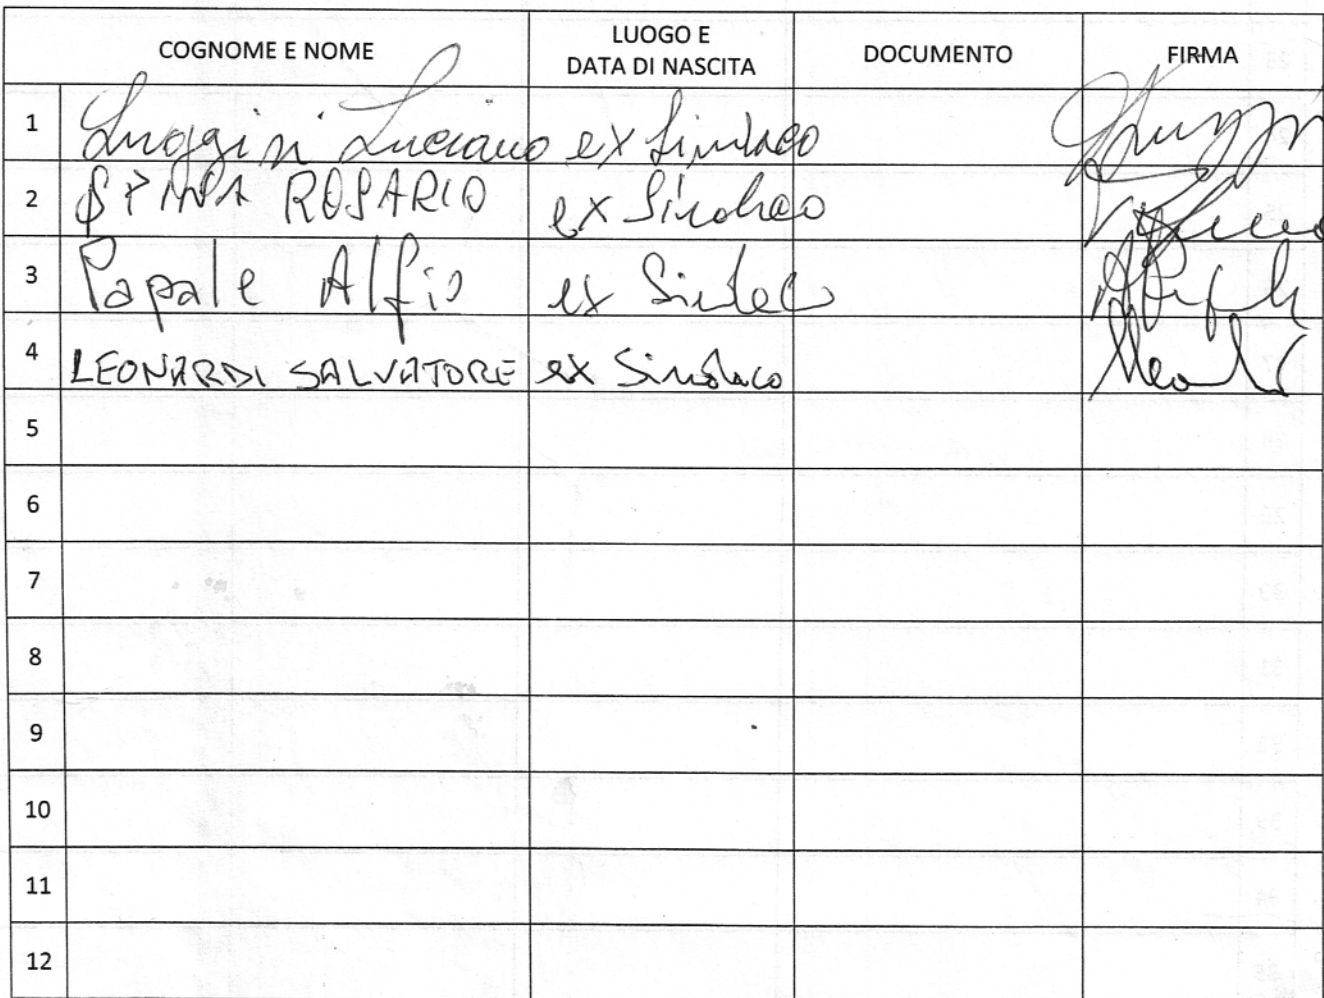 COGNOME E NOME LUOGO E DATA DI NASCITA DOCUMENTO FIRMA
1 Luciano ex Sindaco
2 SPINA ROSARIO ex Sindaco
3 Papale Alfio ex Sindaco
4 LEONARDI SALVATORE ex Sindaco
5
6
7
8
9
10
11
12